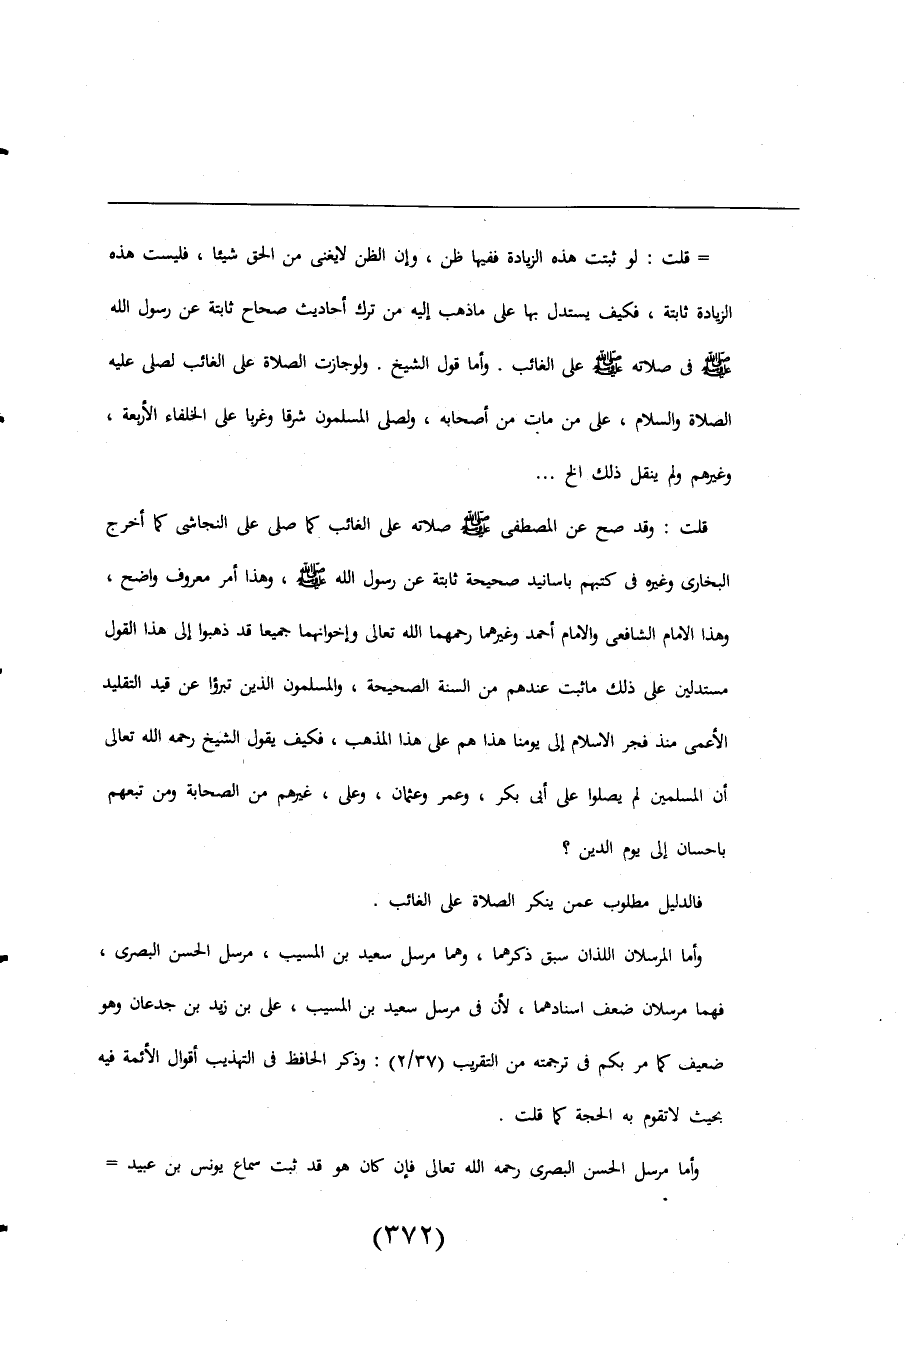 = قلت : لو ثبتت هذه الزيادة ففيها ظن ، وإن الظن لايغنى من الحق شيئا ، فليست هذه
الزيادة ثابتة ، فكيف يستدل بها على ماذهب إليه من ترك أحاديث صحاح ثابتة عن رسول الله
ﷺ فى صلاته ﷺ على الغائب . وأما قول الشيخ . ولوجازت الصلاة على الغائب لصلى عليه
الصلاة والسلام ، على من مات من أصحابه ، ولصلى المسلمون شرقا وغربا على الخلفاء الأربعة ،
وغيرهم ولم ينقل ذلك الخ ...
قلت : وقد صح عن المصطفى ﷺ صلاته على الغائب كما صلى على النجاشى كما أخرج
البخارى وغيره فى كتبهم باسانيد صحيحة ثابتة عن رسول الله ﷺ ، وهذا أمر معروف واضح ،
وهذا الامام الشافعى والامام أحمد وغيرهما رحمهما الله تعالى وإخوانهما جميعا قد ذهبوا إلى هذا القول
مستدلين على ذلك ماثبت عندهم من السنة الصحيحة ، والمسلمون الذين تبرؤا عن قيد التقليد
الأعمى منذ فجر الاسلام إلى يومنا هذا هم على هذا المذهب ، فكيف يقول الشيخ رحمه الله تعالى
أن المسلمين لم يصلوا على أبى بكر ، وعمر وعثمان ، وعلى ، غيرهم من الصحابة ومن تبعهم
باحسان إلى يوم الدين ؟
فالدليل مطلوب عمن ينكر الصلاة على الغائب .
وأما المرسلان اللذان سبق ذكرهما ، وهما مرسل سعيد بن المسيب ، مرسل الحسن البصرى ،
فهما مرسلان ضعف اسنادهما ، لأن فى مرسل سعيد بن المسيب ، على بن زيد بن جدعان وهو
ضعيف كما مر بكم فى ترجمته من التقريب (٢/٣٧) : وذكر الحافظ فى التهذيب أقوال الأئمة فيه
بحيث لاتقوم به الحجة كما قلت .
وأما مرسل الحسن البصرى رحمه الله تعالى فإن كان هو قد ثبت سماع يونس بن عبيد =
(٣٧٢)